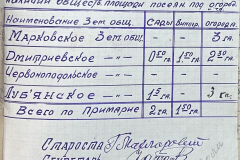 обществ площади посеян под огород.
Наименование Зем общ. Сады Виногр. огорода.
Марковское Зем. общ. — — 3 га
Дмитриевское —„— 0 50 га 1 50 га 2 50 га
Червоноподольское —„— — — —
Дубʼянское —„— 1 5 га — 3 га
Всего по Примарие 2 га 1 50 га
Староста